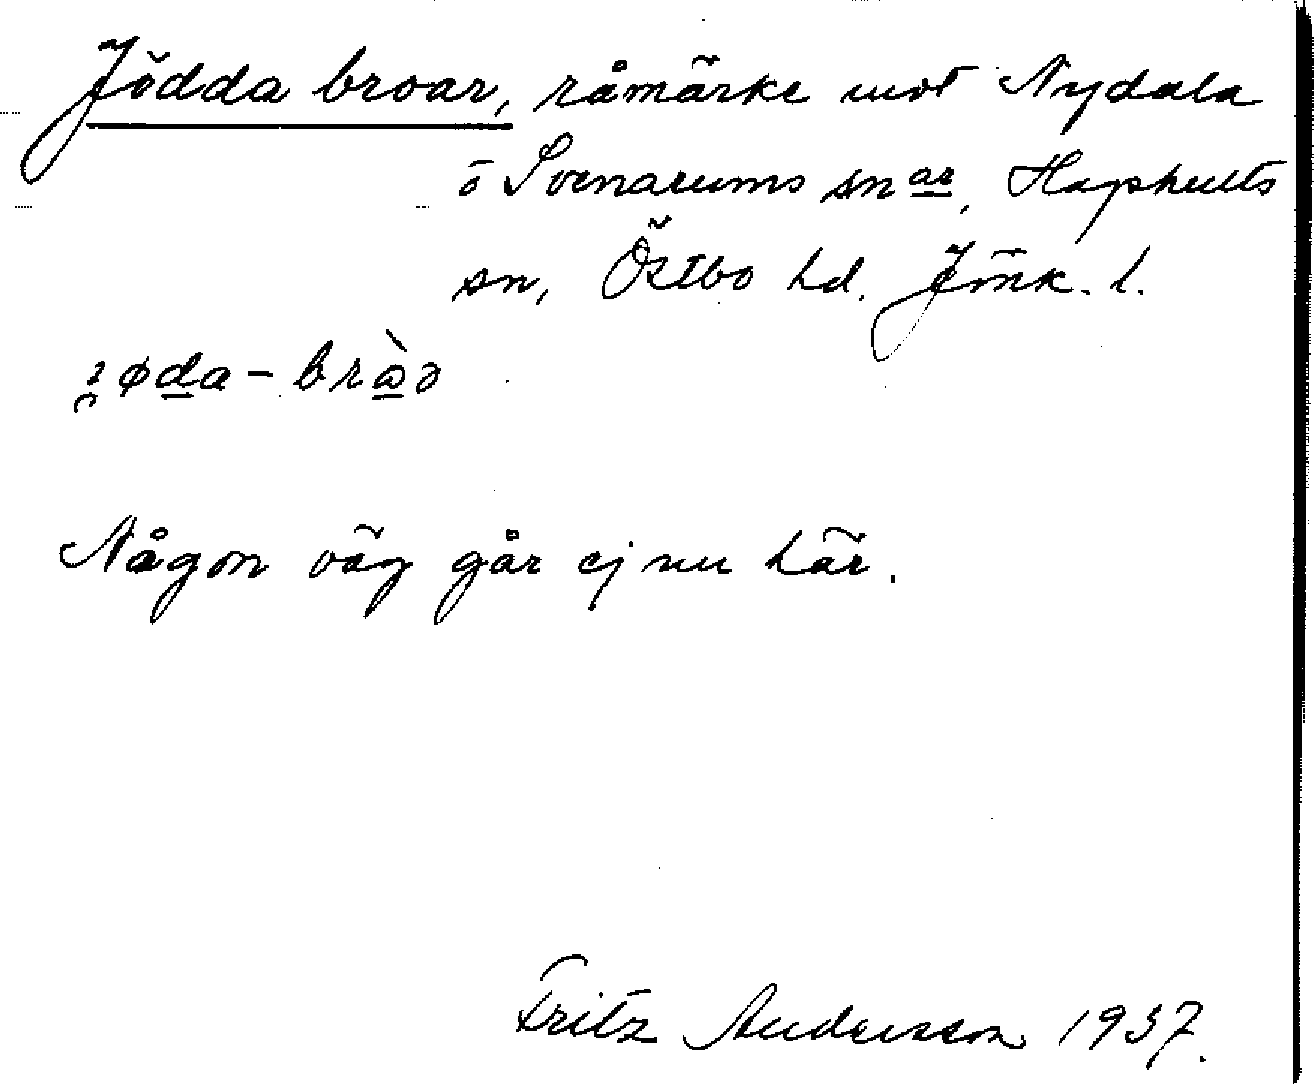 Jödda broar, råmärke mot Nydala
o Svenarums snar, Hagshults
sn, Östbo hd. Jönk. l.
Någon väg går ej nu här.
Fritz Andersson 1937.